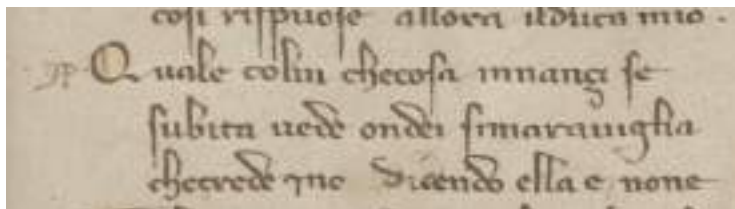 cosi rispuose allora ilduca mio .
Quale colui checosa innançi se
subita uede ondei simarauiglia
checrede ⁊no dicendo ella e none